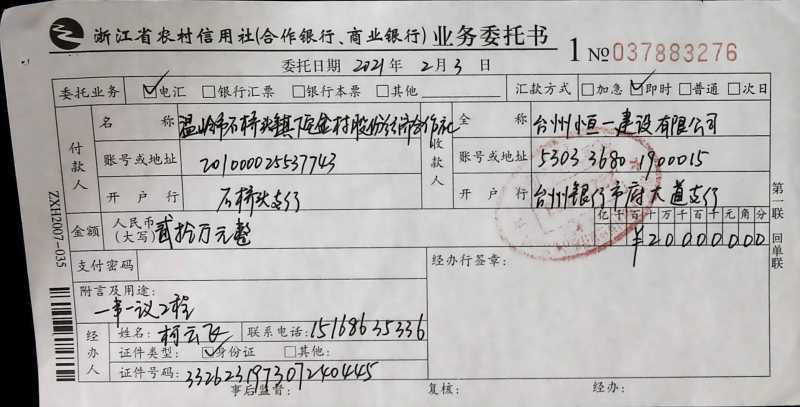 浙江省农村信用社(合作银行、商业银行) 业务委托书 1 No 037883276
委托日期 2021 年 2 月 3 日
委托业务 ☑电汇 □银行汇票 □银行本票 □其他 汇款方式 □加急 ☑即时 □普通 □次日
付款人 名称 温岭市石桥头镇下宅金村股份经济合作社 收款人 全称 台州恒一建设有限公司
账号或地址 201000025537743 账号或地址 530336801900015
开户行 石桥头支行 开户行 台州银行市府大道支行
金额 人民币(大写) 贰拾万元整 亿千百十万千百十元角分 ¥20000000
支付密码 经办行签章:
附言及用途:
一事一议工程
经办人 姓名: 柯云飞 联系电话: 15168635336
证件类型: ☑身份证 □其他:
证件号码: 332623197307240445
事后监督: 复核: 经办:
第一联 回单联
ZXH2007-035